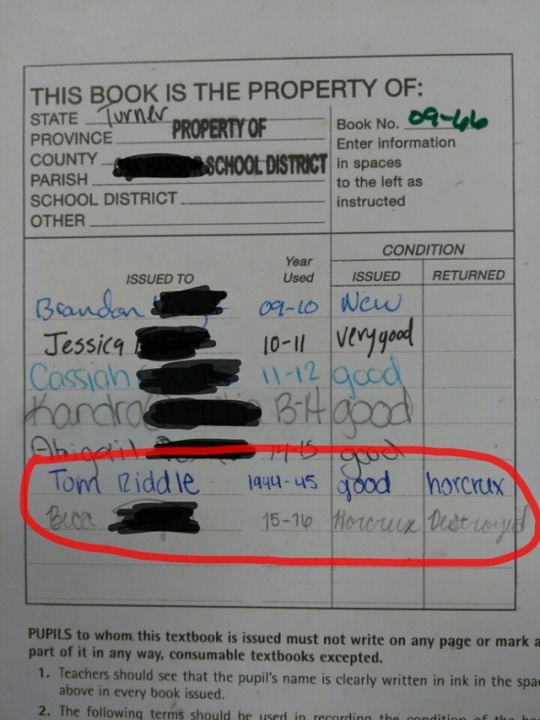 THIS BOOK IS THE PROPERTY OF:
STATE Turner
PROVINCE
COUNTY
PARISH
SCHOOL DISTRICT
OTHER
PROPERTY OF
SCHOOL DISTRICT
Book No. 09-66
Enter information
in spaces
to the left as
instructed
CONDITION
ISSUED TO Year Used ISSUED RETURNED
Brandon 09-10 New
Jessica 10-11 very good
Cassiah 11-12 good
Kandra 13-14 good
Abigail 14-15 good
Tom Riddle 1944-45 good horcrux
15-16 Horcrux Destroyed
PUPILS to whom this textbook is issued must not write on any page or mark a
part of it in any way, consumable textbooks excepted.
1. Teachers should see that the pupil's name is clearly written in ink in the
above in every book issued.
2. The following terms should be used in recording the condition of the